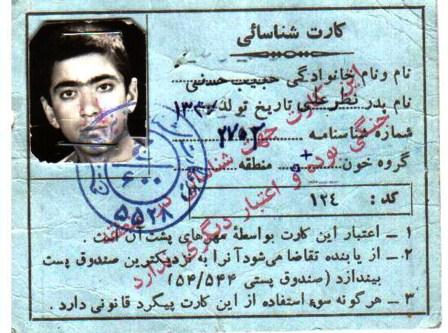 کارت شناسائی
نام ونام خانوادگی حبیب حسنی
نام پدر نظرعلی تاریخ تولد
شماره شناسنامه ۲۷۵۳
گروه خون O+ منطقه
کد : ۱۲٤
۱ ـ اعتبار این کارت بواسطهٔ مهرهای پشت آن است .
۲ ـ از یابنده تقاضا میشود آنرا به نزدیکترین صندوق پست
بیندازد ( صندوق پستی ۵۴/۵۴۴ )
۳ ـ هرگونه سوء استفاده از این کارت پیگرد قانونی دارد .
این کارت جهت شناسائی
جنگی بوده و اعتبار دیگری ندارد
۶۰۰
۵۵۲۸